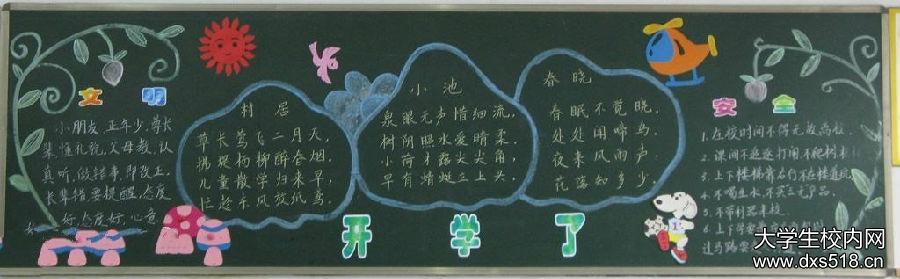 文明
小朋友 正年少,尊长
辈 懂礼貌,父母教,认
真听,做错事,即改正,
长辈错,要提醒,态度
好
村居
草长莺飞二月天,
拂堤杨柳醉春烟。
儿童散学归来早,
忙趁东风放纸鸢。
小池
泉眼无声惜细流,
树阴照水爱晴柔。
小荷才露尖尖角,
早有蜻蜓立上头。
春晓
春眠不觉晓,
处处闻啼鸟。
夜来风雨声,
花落知多少。
安全
1.在校时间不得无故离校.
2.课间不追逐打闹不爬树
3.上下楼梯靠右行不在楼道玩
4.不喝生水,不买三无产品.
5.不带利器来校.
6.上下学
过马路
开学了
大学生校内网
www.dxs518.cn